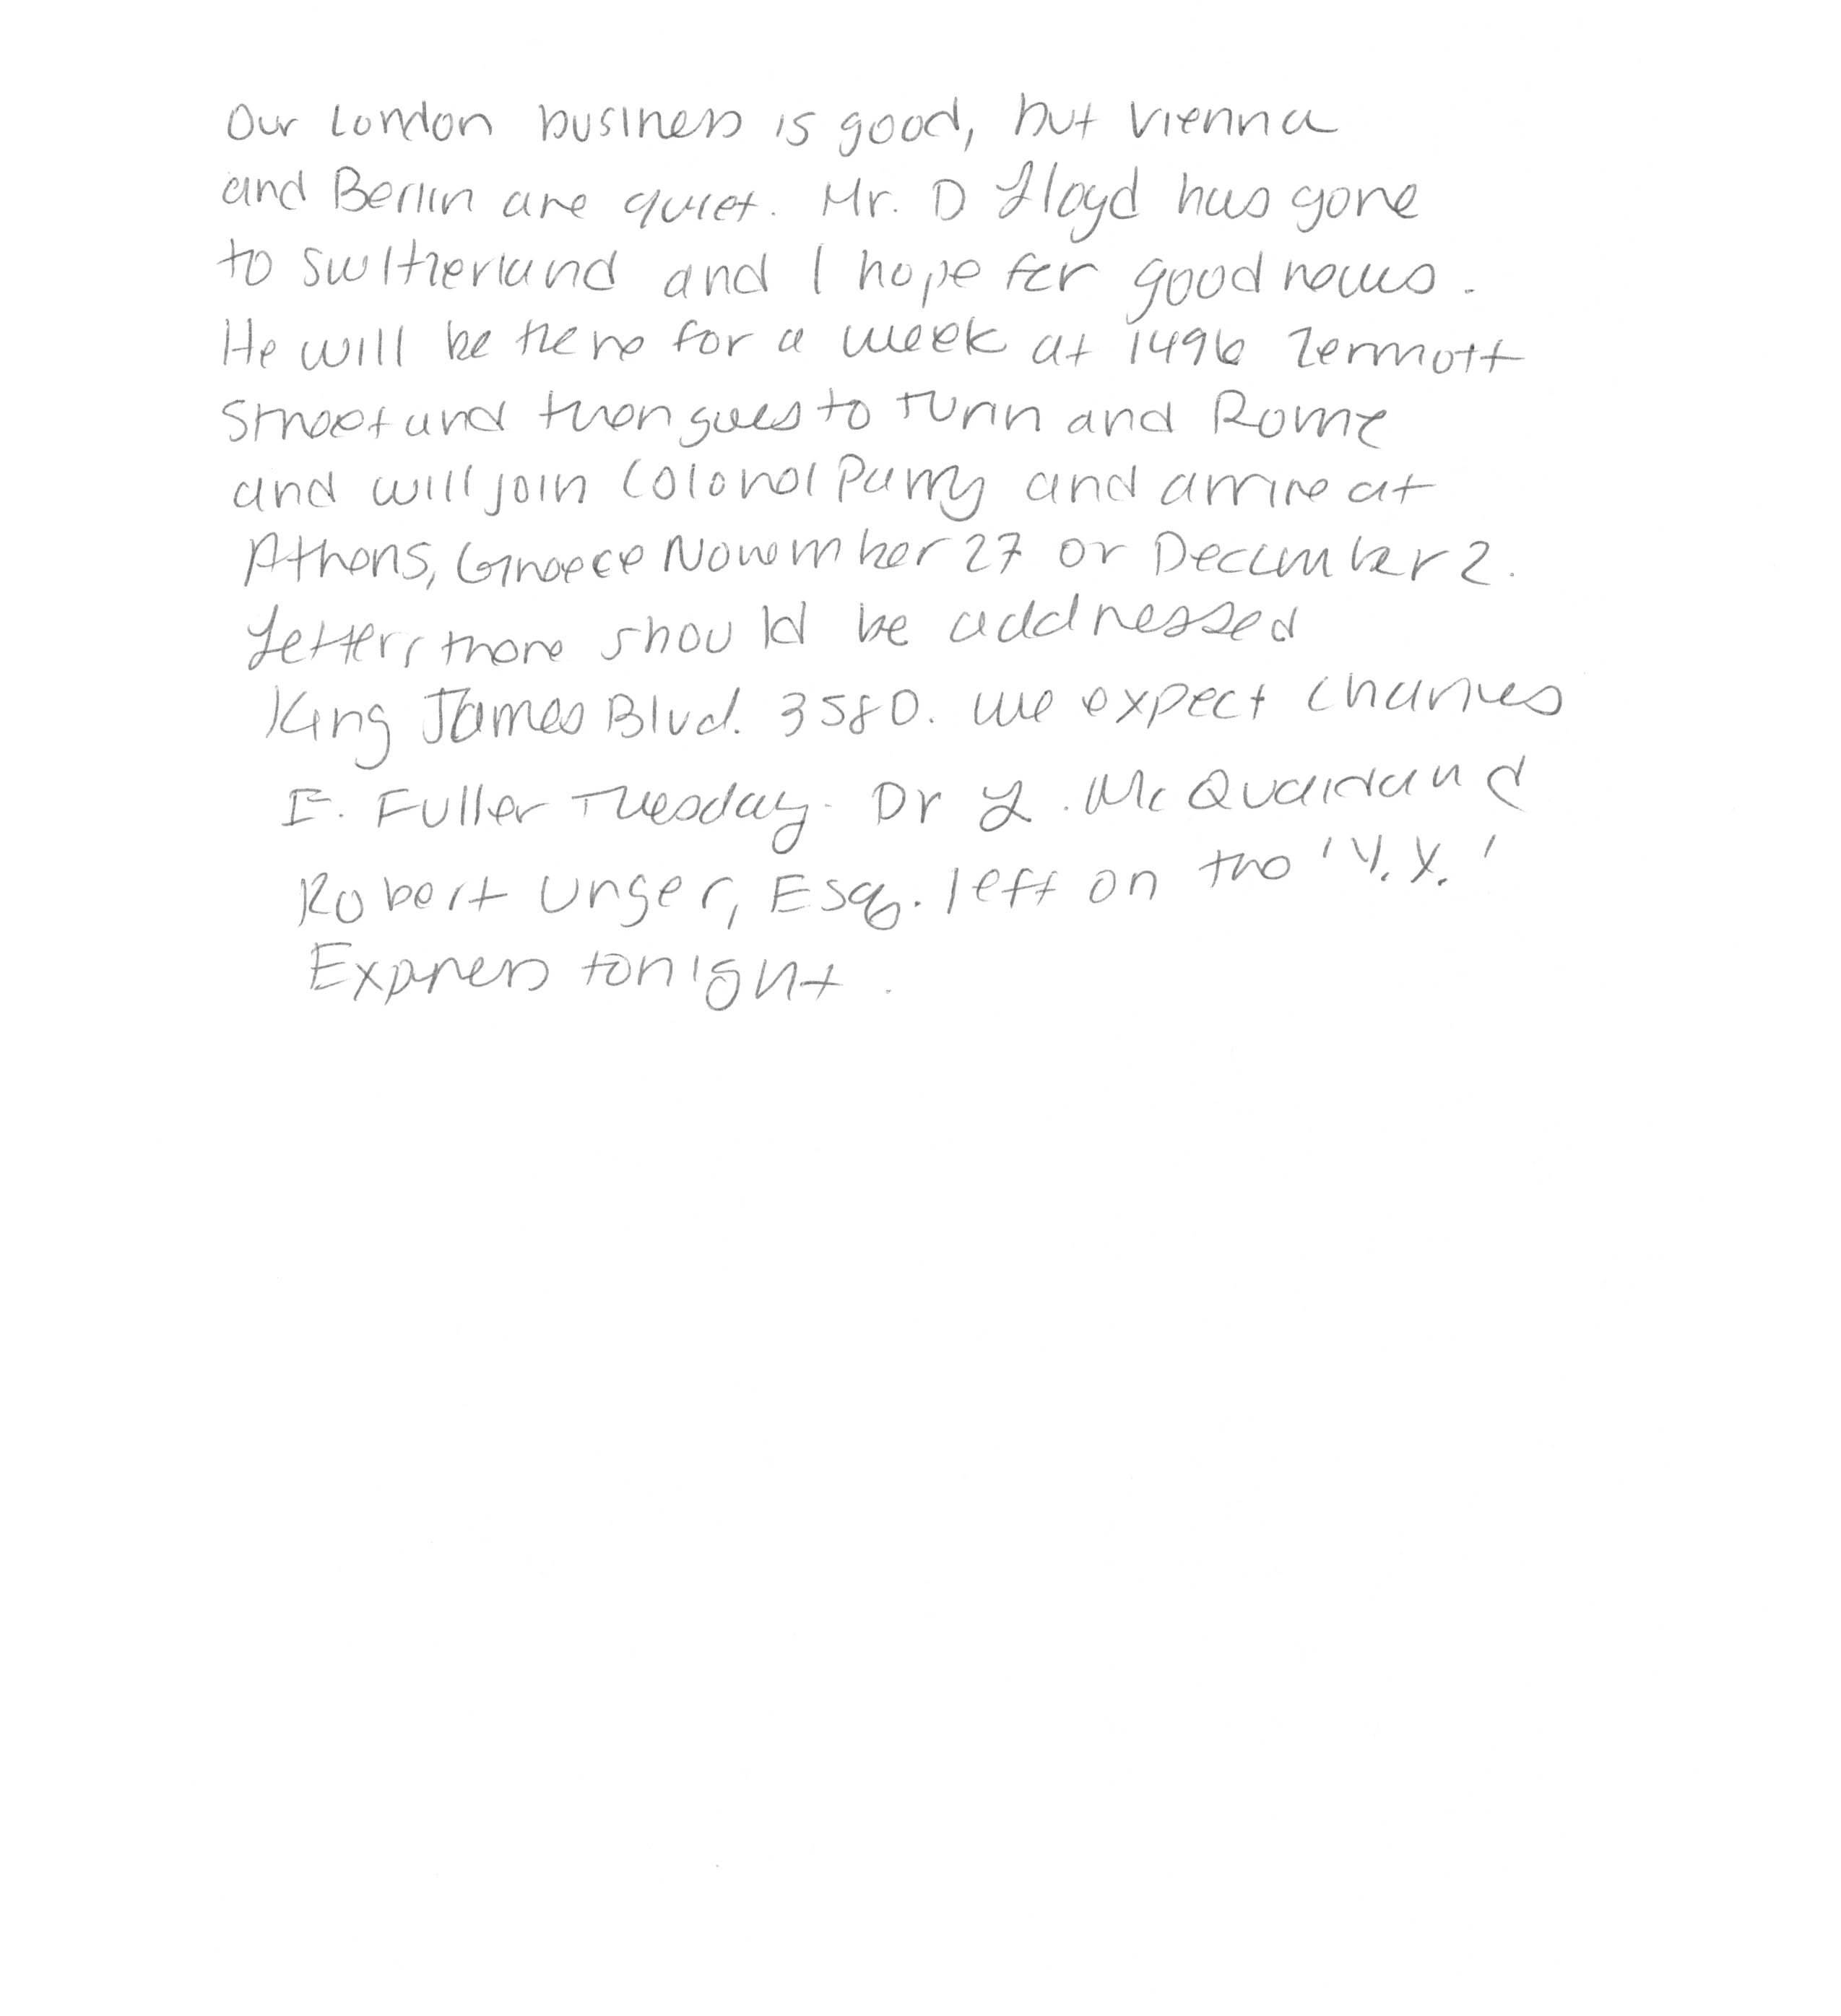 Our London business is good, but Vienna
and Berlin are quiet. Mr. D Lloyd has gone
to Switzerland and I hope for good news.
He will be there for a week at 1496 Zermott
Street and then goes to Turin and Rome
and will join Colonel Parry and arrive at
Athens, Greece November 27 or December 2.
Letters there should be addressed
King James Blvd. 3580. We expect Charles
E. Fuller Tuesday. Dr L. McQuaid and
Robert Unger, Esq. left on the 'Y.X.'
Express tonight.